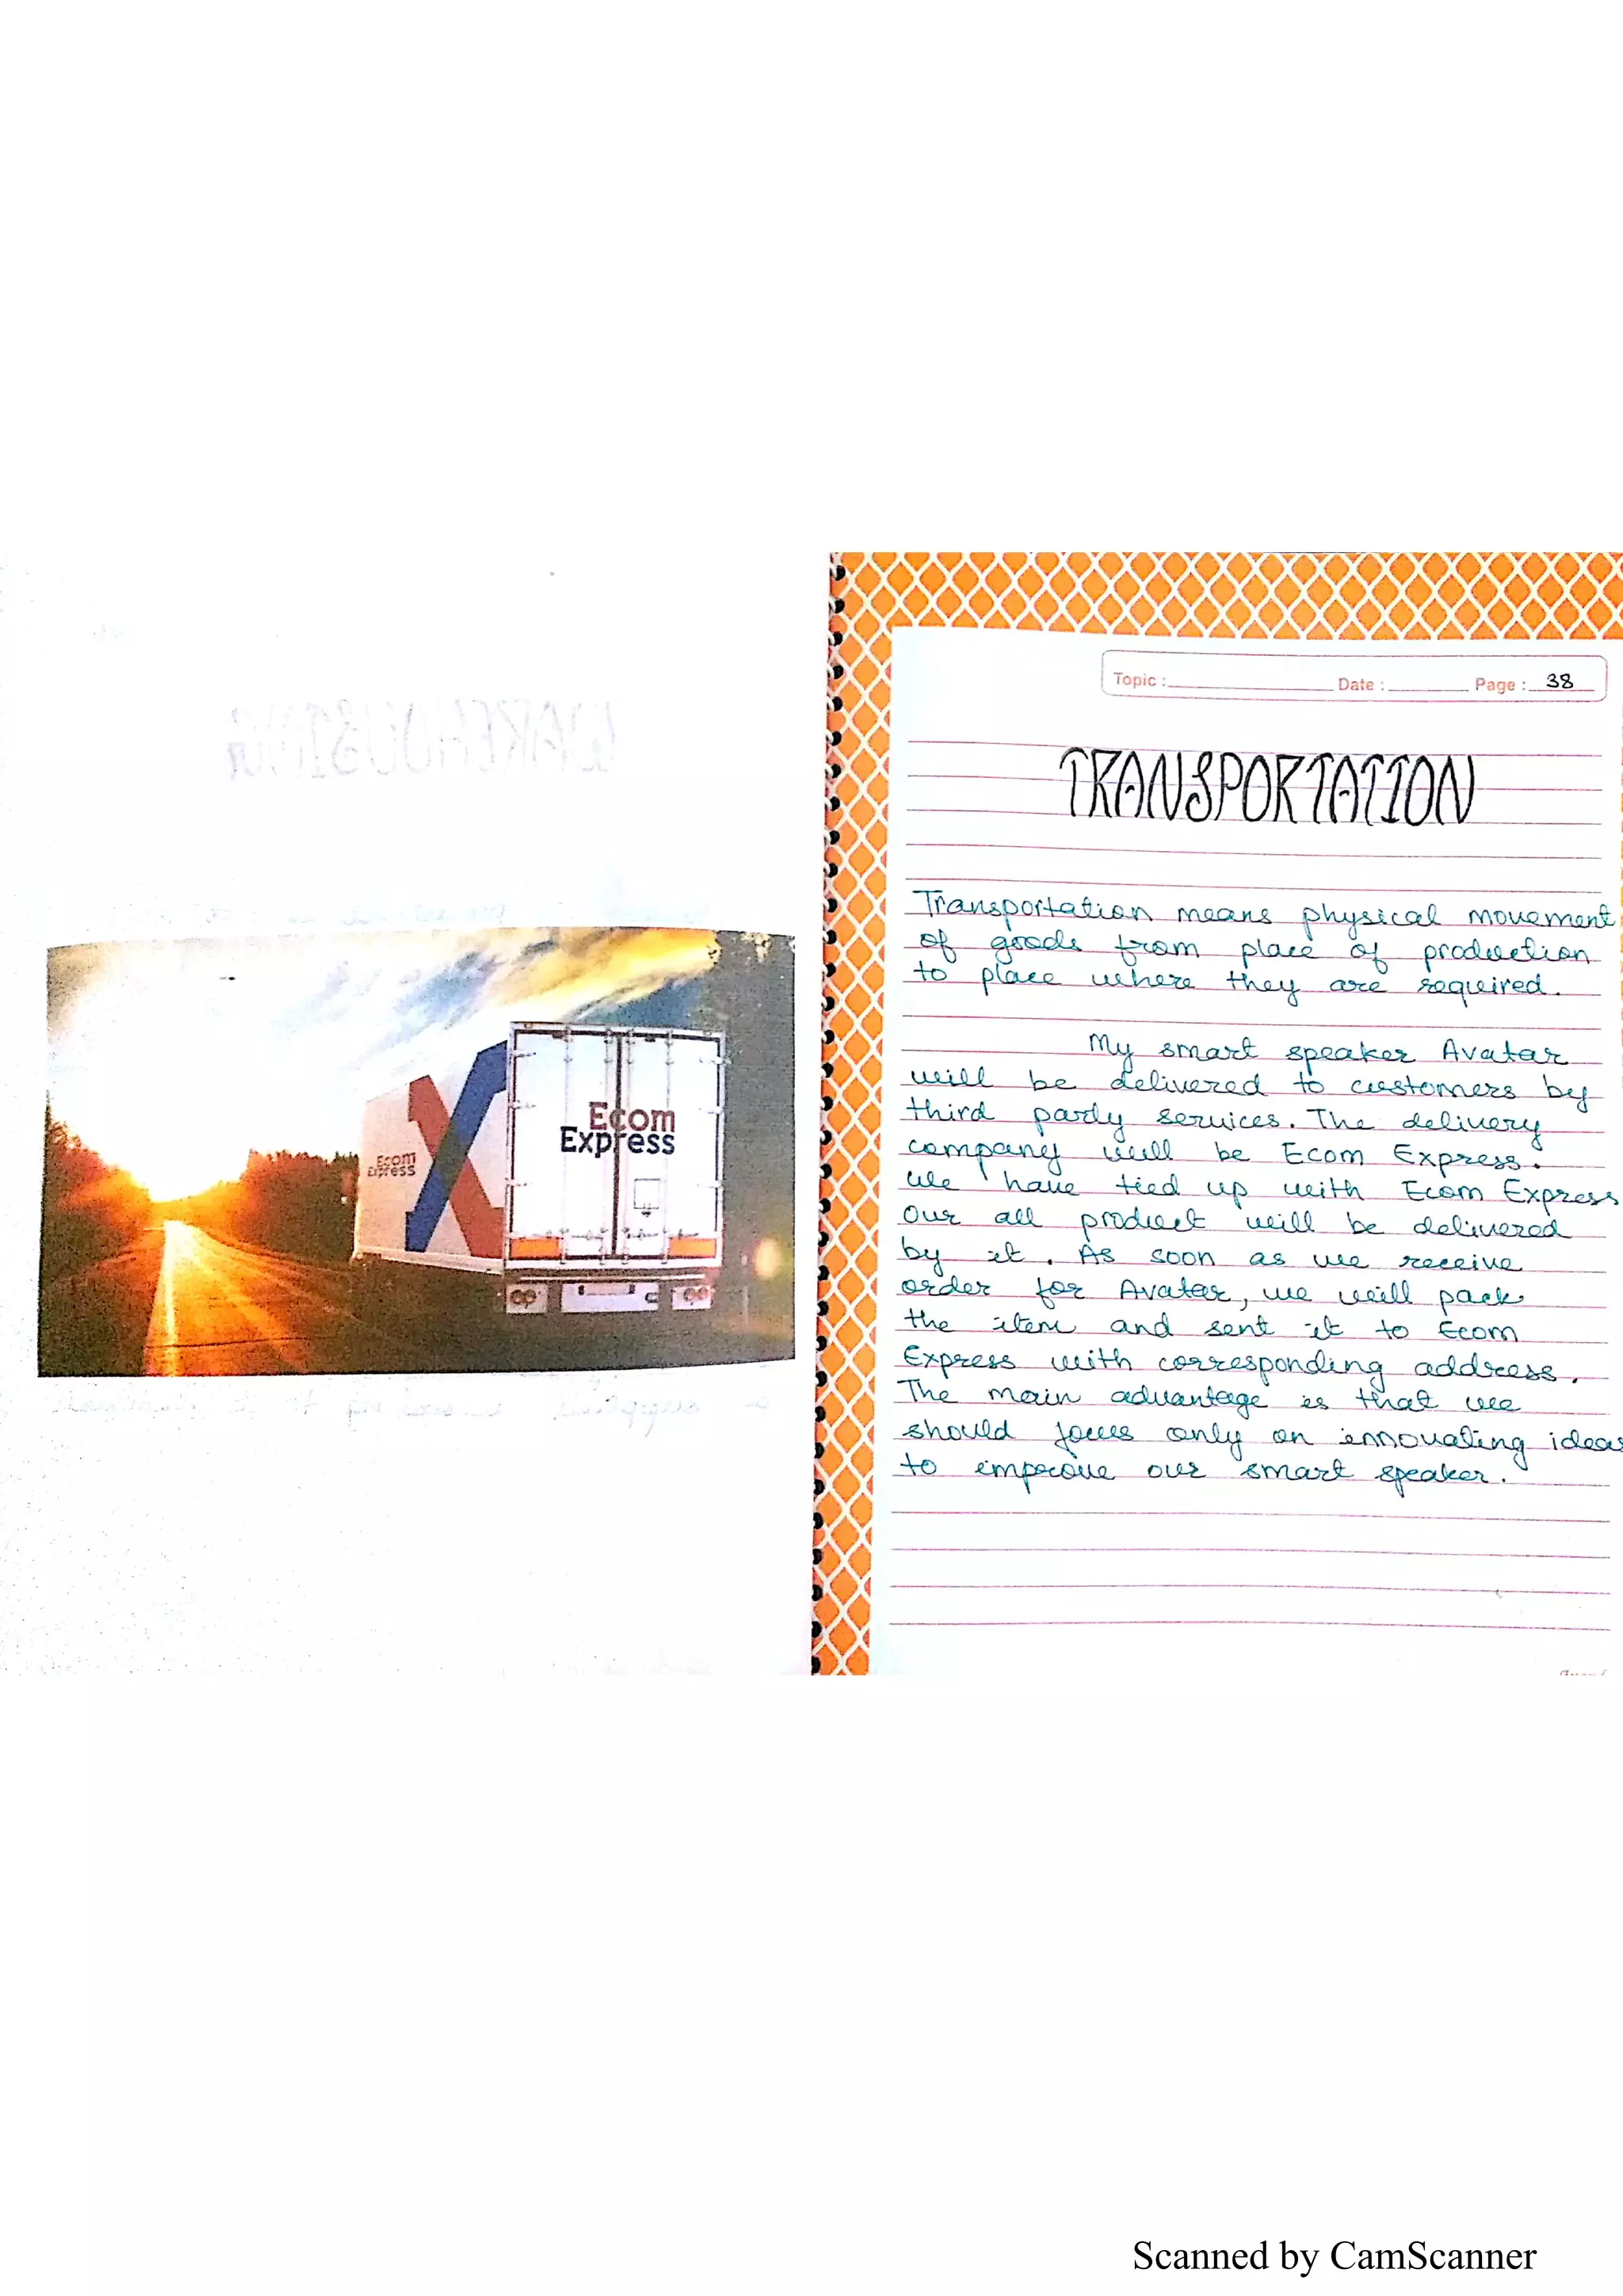 Ecom
Express
Ecom
Express
Topic : Date : Page : 38
TRANSPORTATION
Transportation means physical movement
of goods from place of production
to place where they are required.
My smart speaker Avatar
will be delivered to customers by
third party services. The delivery
company will be Ecom Express.
We have tied up with Ecom Express
Our all product will be delivered
by it. As soon as we receive
order for Avatar, we will pack
the item and sent it to Ecom
Express with corresponding address.
The main advantage is that we
should focus only on innovating ideas
to improve our smart speaker.
Scanned by CamScanner